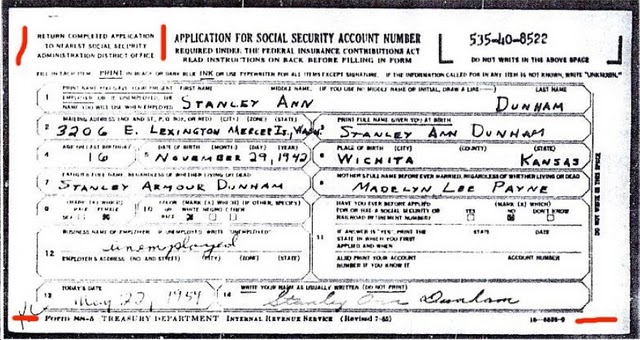 RETURN COMPLETED APPLICATION
TO NEAREST SOCIAL SECURITY
ADMINISTRATION DISTRICT OFFICE
APPLICATION FOR SOCIAL SECURITY ACCOUNT NUMBER
REQUIRED UNDER THE FEDERAL INSURANCE CONTRIBUTIONS ACT
READ INSTRUCTIONS ON BACK BEFORE FILLING IN FORM
535-40-8522
DO NOT WRITE IN THE ABOVE SPACE
FILL IN EACH ITEM. PRINT IN BLACK OR DARK BLUE INK OR USE TYPEWRITER FOR ALL ITEMS EXCEPT SIGNATURE. IF THE INFORMATION CALLED FOR IN ANY ITEM IS NOT KNOWN, WRITE "UNKNOWN."
1 FIRST NAME MIDDLE NAME, (IF YOU USE NO MIDDLE NAME OR INITIAL, DRAW A LINE) LAST NAME
STANLEY ANN DUNHAM
2 MAILING ADDRESS (NO. AND ST., P. O. BOX, OR RFD) (CITY) (ZONE) (STATE)
3206 E. LEXINGTON MERCER IS., WASH.
3 PRINT FULL NAME GIVEN YOU AT BIRTH
STANLEY ANN DUNHAM
4 AGE ON LAST BIRTHDAY
16
5 DATE OF BIRTH (MONTH) (DAY) (YEAR)
NOVEMBER 29, 1942
6 PLACE OF BIRTH (CITY) (COUNTY) (STATE)
WICHITA KANSAS
7 FATHER'S FULL NAME, REGARDLESS OF WHETHER LIVING OR DEAD
STANLEY ARMOUR DUNHAM
8 MOTHER'S FULL NAME BEFORE EVER MARRIED, REGARDLESS OF WHETHER LIVING OR DEAD
MADELYN LEE PAYNE
9 (MARK (X) WHICH) MALE FEMALE
SEX
10 COLOR (MARK (X) WHICH) (IF OTHER, SPECIFY)
RACE WHITE NEGRO OTHER
HAVE YOU EVER BEFORE APPLIED (MARK (X) WHICH)
FOR OR HAD A SOCIAL SECURITY OR YES NO DON'T KNOW
RAILROAD RETIREMENT NUMBER?
11 IF ANSWER IS "YES", PRINT THE STATE DATE
STATE IN WHICH YOU FIRST
APPLIED AND WHEN
ALSO PRINT YOUR ACCOUNT ACCOUNT NUMBER
NUMBER IF YOU KNOW IT
12 BUSINESS NAME OF EMPLOYER. IF UNEMPLOYED, WRITE "UNEMPLOYED"
unemployed
EMPLOYER'S ADDRESS (NO. AND STREET) (CITY) (ZONE) (STATE)
13 TODAY'S DATE
14 WRITE YOUR NAME AS USUALLY WRITTEN (DO NOT PRINT)
Stanley Ann Dunham
TREASURY DEPARTMENT INTERNAL REVENUE SERVICE